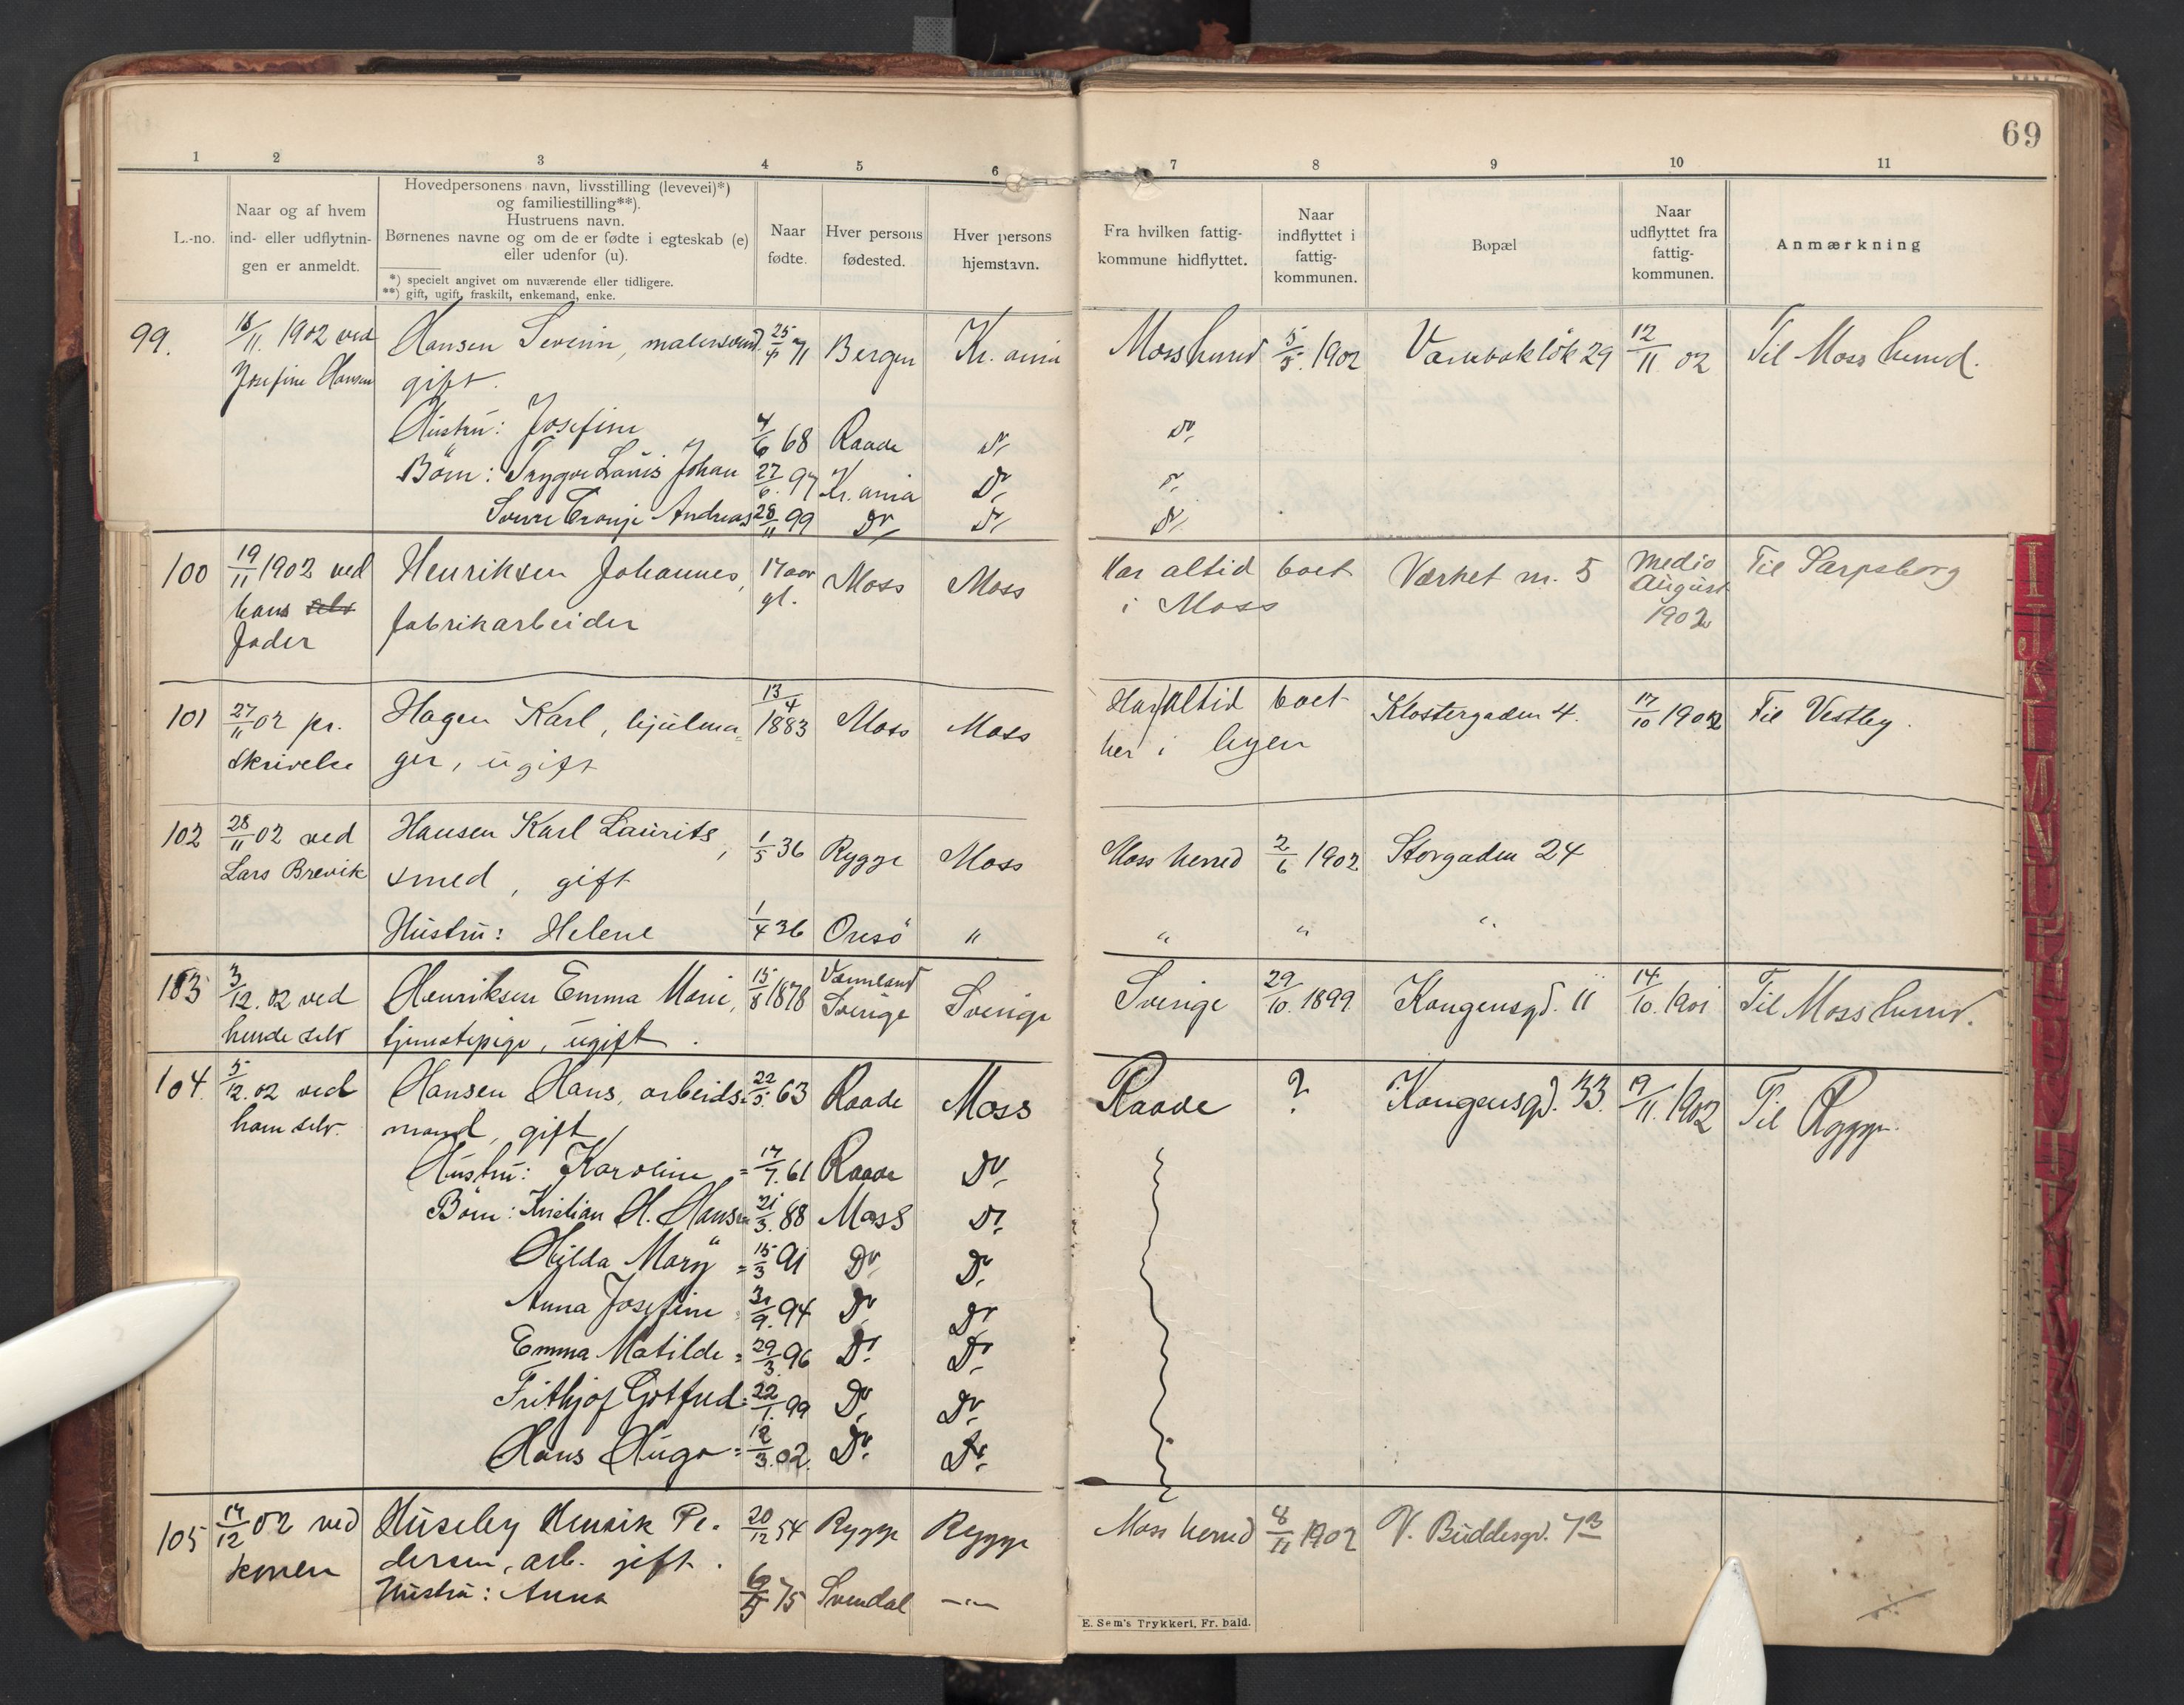 69
1 2 3 4 5 6 7 8 9 10 11
L.-no.
Naar og af hvem
ind- eller udflytnin-
gen er anmeldt.
Hovedpersonens navn, livsstilling (levevei)*)
og familiestilling**).
Hustruens navn.
Børnenes navne og om de er fødte i egteskab (e)
eller udenfor (u).
*) specielt angivet om nuværende eller tidligere.
**) gift, ugift, fraskilt, enkemand, enke.
Naar
fødte.
Hver persons
fødested.
Hver persons
hjemstavn.
Fra hvilken fattig-
kommune hidflyttet.
Naar
indflyttet i
fattig-
kommunen.
Bopæl
Naar
udflyttet fra
fattig-
kommunen.
Anmærkning
99. 18/11. 1902 ved Hansen Severin, malersvend. 25/4 71 Bergen Kr.ania Moss herred 5/5. 1902 29 12/11 02 Til Moss herred.
Josefine Hansen gift.
Hustru: Josefine 4/6 68 Raade Do Do
Børn: Trygve Lauis Johan 27/6. 97 Kr.ania Do Do
Andreas 28/11 99 Do Do Do
100 19/11 1902 ved Henriksen Johannes, 17 aar Moss Moss Har altid boet Værket nr. 5 Medio Til Sarpsborg
hans selv fabrikarbeider gl. i Moss August
fader 1902
101 27/11 02 pr. Hagen Karl, hjulma= 13/4 1883 Moss Moss Har altid boet Klostergaden 4. 17/10 1902 Til Vestby.
skrivelse ger, ugift her i byen
102 28/11 02 ved Hansen Karl Laurits, 1/5 36 Rygge Moss Moss herred 2/6 1902 Storgaden 24
Lars Brevik smed, gift
Hustru: Helene 1/4 36 Onsö " " " "
103 3/12. 02 ved Henriksen Emma Marie, 15/8 1878 Vermland Sverige Sverige Sverige 29/10. 1899 Kongensgd. 11 14/10. 1901 Til Moss herred.
hende selv tjenestepige, ugift.
104. 5/12. 02 ved Hansen Hans, arbeids= 22/5. 63 Raade Moss Raade ? Kongensgd. 33. 19/11. 1902 Til Rygge.
ham selv. mand, gift
Hustru: Karoline = 17/7. 61 Raade Do
Børn: Kristian H. Hansen 21/3. 88 Moss Do
Hilda Mary = 15/3 91 Do Do
Anna Josefine 9. 94 Do Do
Emma Matilde = 29/3. 96 Do Do
Frithjof Gotfred = 22/1. 99 Do Do
Hans Hugo = 12/3. 02. Do Do
105 17/12 02 ved Huseby Henrik Pe- 20/12 54 Rygge Rygge Moss herred 8/11 1902 V. Buddesgd. 7B
konen dersen, arb. gift.
Hustru: Anna 75 Svendal -"-
E. Sem's Trykkeri, Fr. hald.
I
J
K
L
M
N